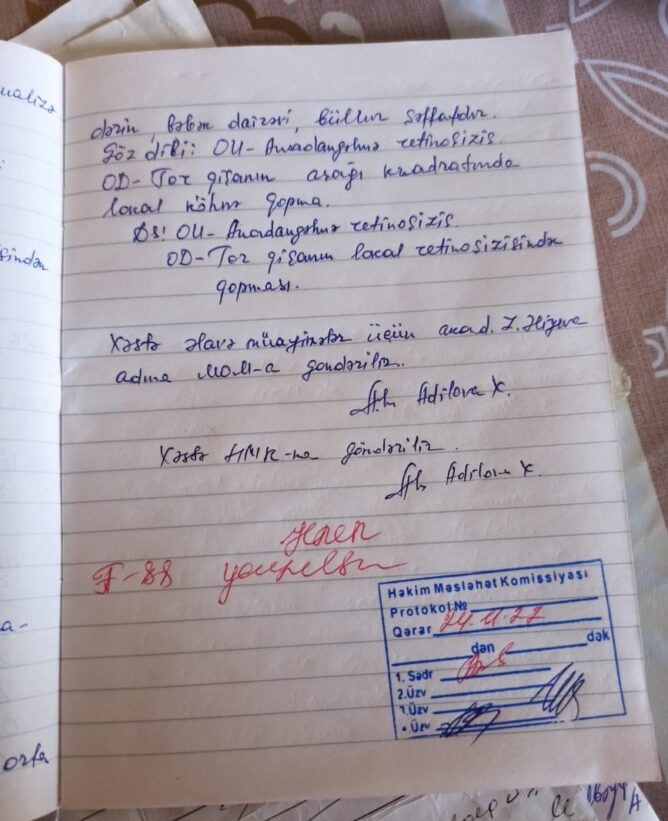 dərin, bəbək dairəvi, büllur şəffafdır.
Göz dibi: OU- Anadangəlmə retinoşizis.
OD- Tor qişanın aşağı kvadratında
lokal köhnə qopma.
Ds: OU- Anadangəlmə retinoşizis.
OD- Tor qişanın lokal retinoşizisindən
qopması.
Xəstə əlavə müayinələr üçün akad. Z. Əliyeva
adına MOM-a göndərilir.
Adilova X.
Xəstə HMK-na göndərilir.
Adilova X.
F-88
Həkim Məsləhət Komissiyası
Protokol №
Qərar 24.11.22
dən dək
1. Sədr
2. Üzv
Üzv
Üzv
orta